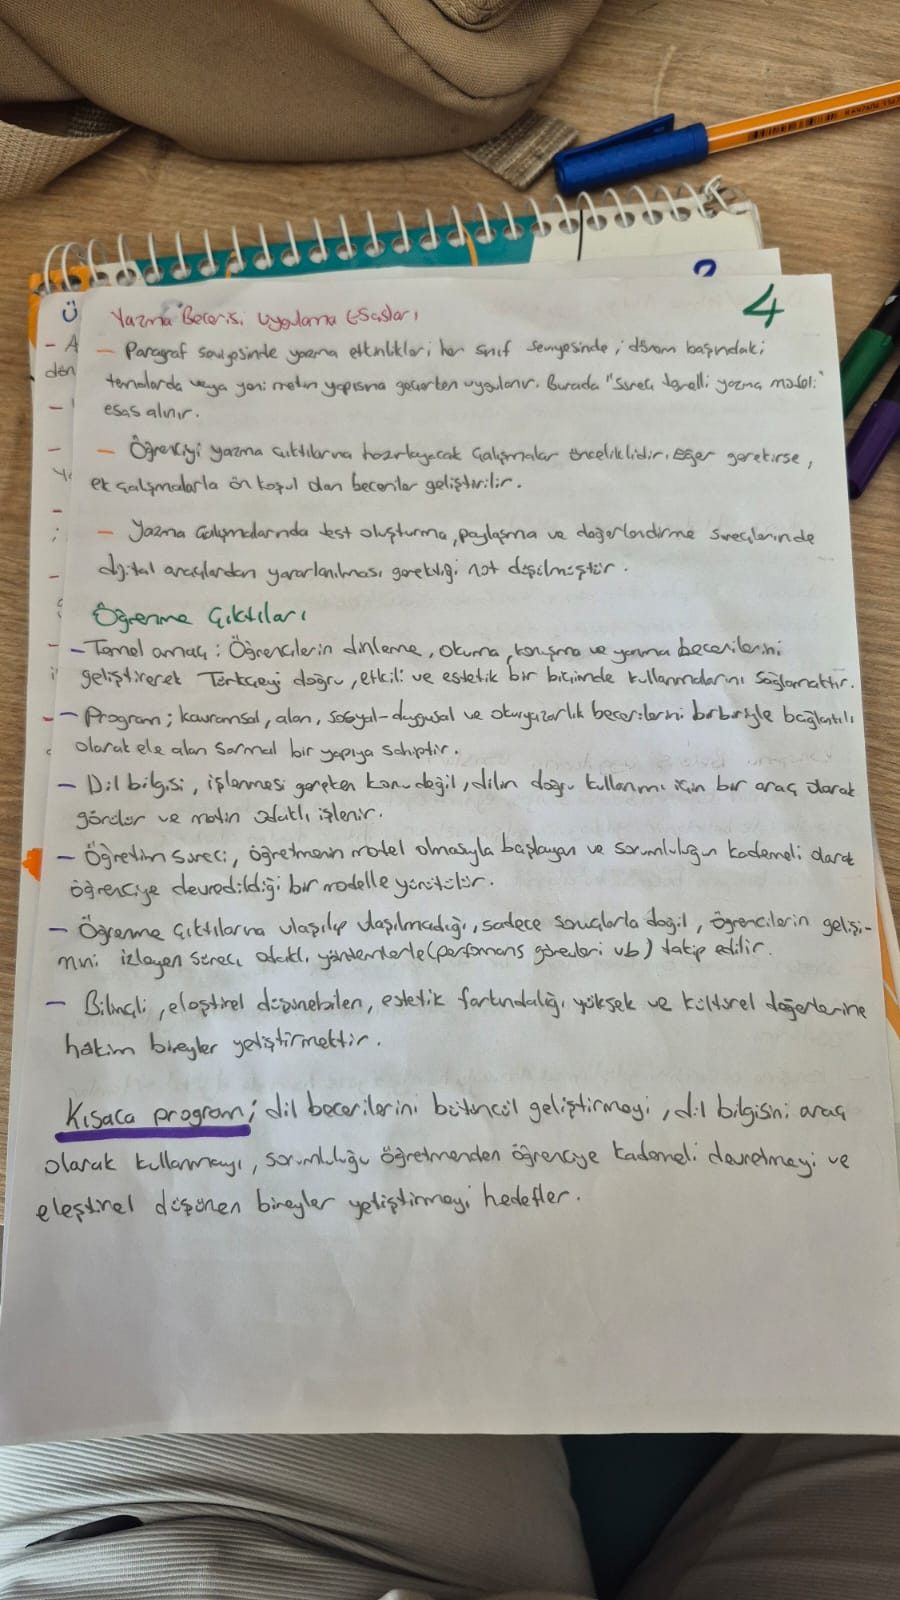 4
Yazma Becerisi Uygulama Esasları
- Paragraf seviyesinde yazma etkinlikleri, her sınıf seviyesinde; dönem başındaki
temalarda veya yeni metin yapısına geçerken uygulanır. Burada "süreç temelli yazma modeli"
esas alınır.
- Öğrenciyi yazma çıktılarına hazırlayacak çalışmalar önceliklidir. Eğer gerekirse,
ek çalışmalarla ön koşul olan beceriler geliştirilir.
- Yazma çalışmalarında test oluşturma, paylaşma ve değerlendirme süreçlerinde
dijital araçlardan yararlanılması gerektiği not düşülmüştür.
Öğrenme Çıktıları
- Temel amaç: Öğrencilerin dinleme, okuma, konuşma ve yazma becerilerini
geliştirerek Türkçeyi doğru, etkili ve estetik bir biçimde kullanmalarını sağlamaktır.
- Program; kavramsal, alan, sosyal-duygusal ve okuryazarlık becerilerini birbiriyle bağlantılı
olarak ele alan sarmal bir yapıya sahiptir.
- Dil bilgisi, işlenmesi gereken konu değil, dilin doğru kullanımı için bir araç olarak
görülür ve metin odaklı işlenir.
- Öğretim süreci, öğretmenin model olmasıyla başlayan ve sorumluluğun kademeli olarak
öğrenciye devredildiği bir modelle yürütülür.
- Öğrenme çıktılarına ulaşılıp ulaşılmadığı, sadece sonuçlarla değil, öğrencilerin gelişi-
mini izleyen süreç odaklı yöntemlerle (perfomans görevleri vb) takip edilir.
- Bilinçli, eleştirel düşünebilen, estetik farkındalığı yüksek ve kültürel değerlerine
hâkim bireyler yetiştirmektir.
Kısaca program; dil becerilerini bütüncül geliştirmeyi, dil bilgisini araç
olarak kullanmayı, sorumluluğu öğretmenden öğrenciye kademeli devretmeyi ve
eleştirel düşünen bireyler yetiştirmeyi hedefler.